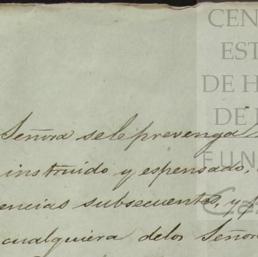 CEN
EST
DE H
DE
FUN
Señora sele prevenga
instruido y espensado,
encias subsecuentes, y
cualquiera delos Señor